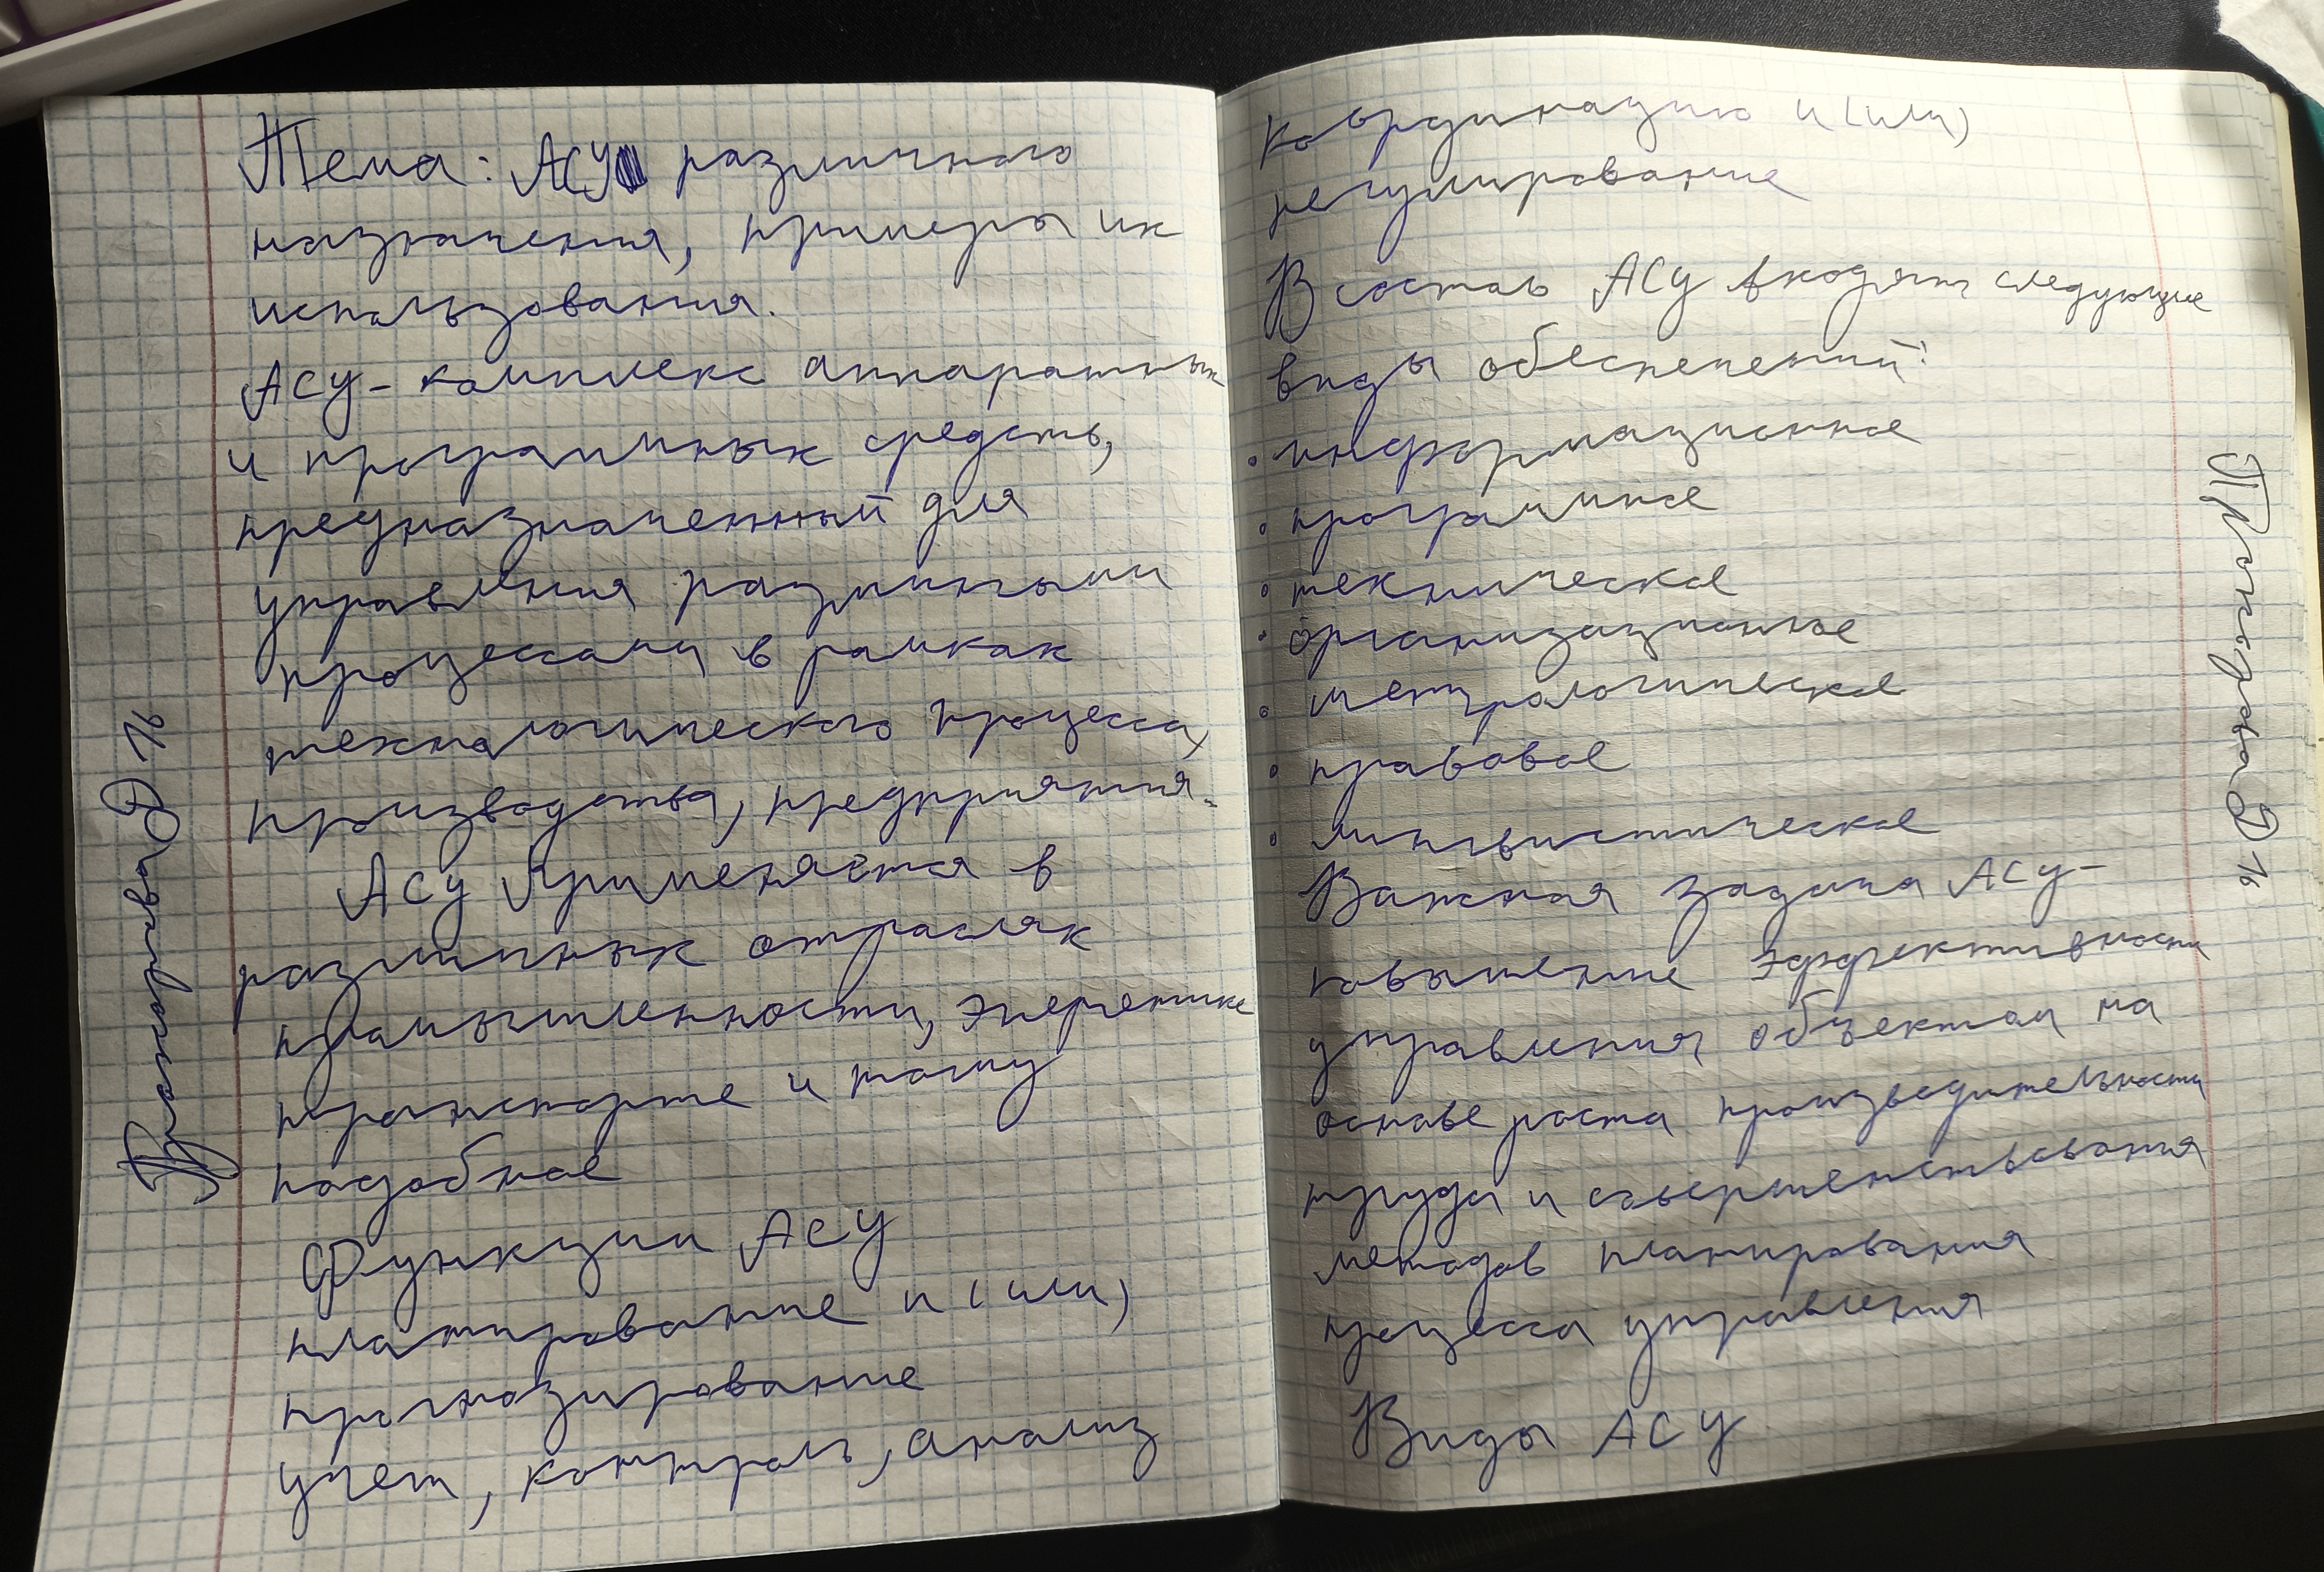 Тема: АСУ различного
назначения, примеры их
использования.
АСУ - комплекс аппаратных
и программных средств,
предназначенный для
управления различными
процессами в рамках
технологического процесса,
производства, предприятия.
АСУ применяется в
различных отраслях
промышленности, энергетике
транспорте и тому
подобное
Функции АСУ
планирование и (или)
прогнозирование
учет, контроль, анализ
Д 16
координацию и (или)
регулирование
В состав АСУ входят следующие
виды обеспечений:
• информационное
• программное
• техническое
• организационное
• метрологическое
• правовое
• лингвистическое
Важная задача АСУ -
повышение эффективности
управления объектом на
основе роста производительности
труда и совершенствования
методов планирования
процесса управления
Виды АСУ
Прокофьева Д 16